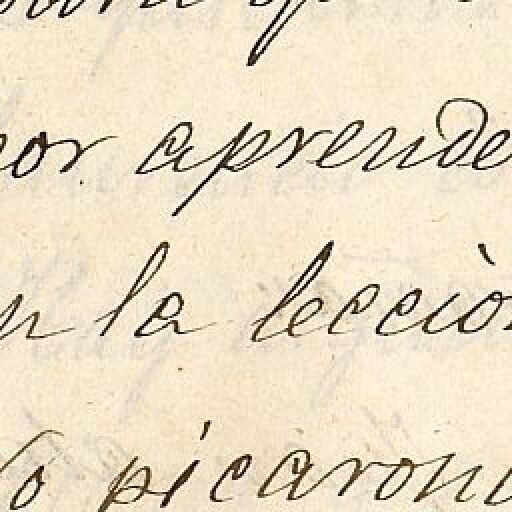 or aprende
n la lecciò
o picaron